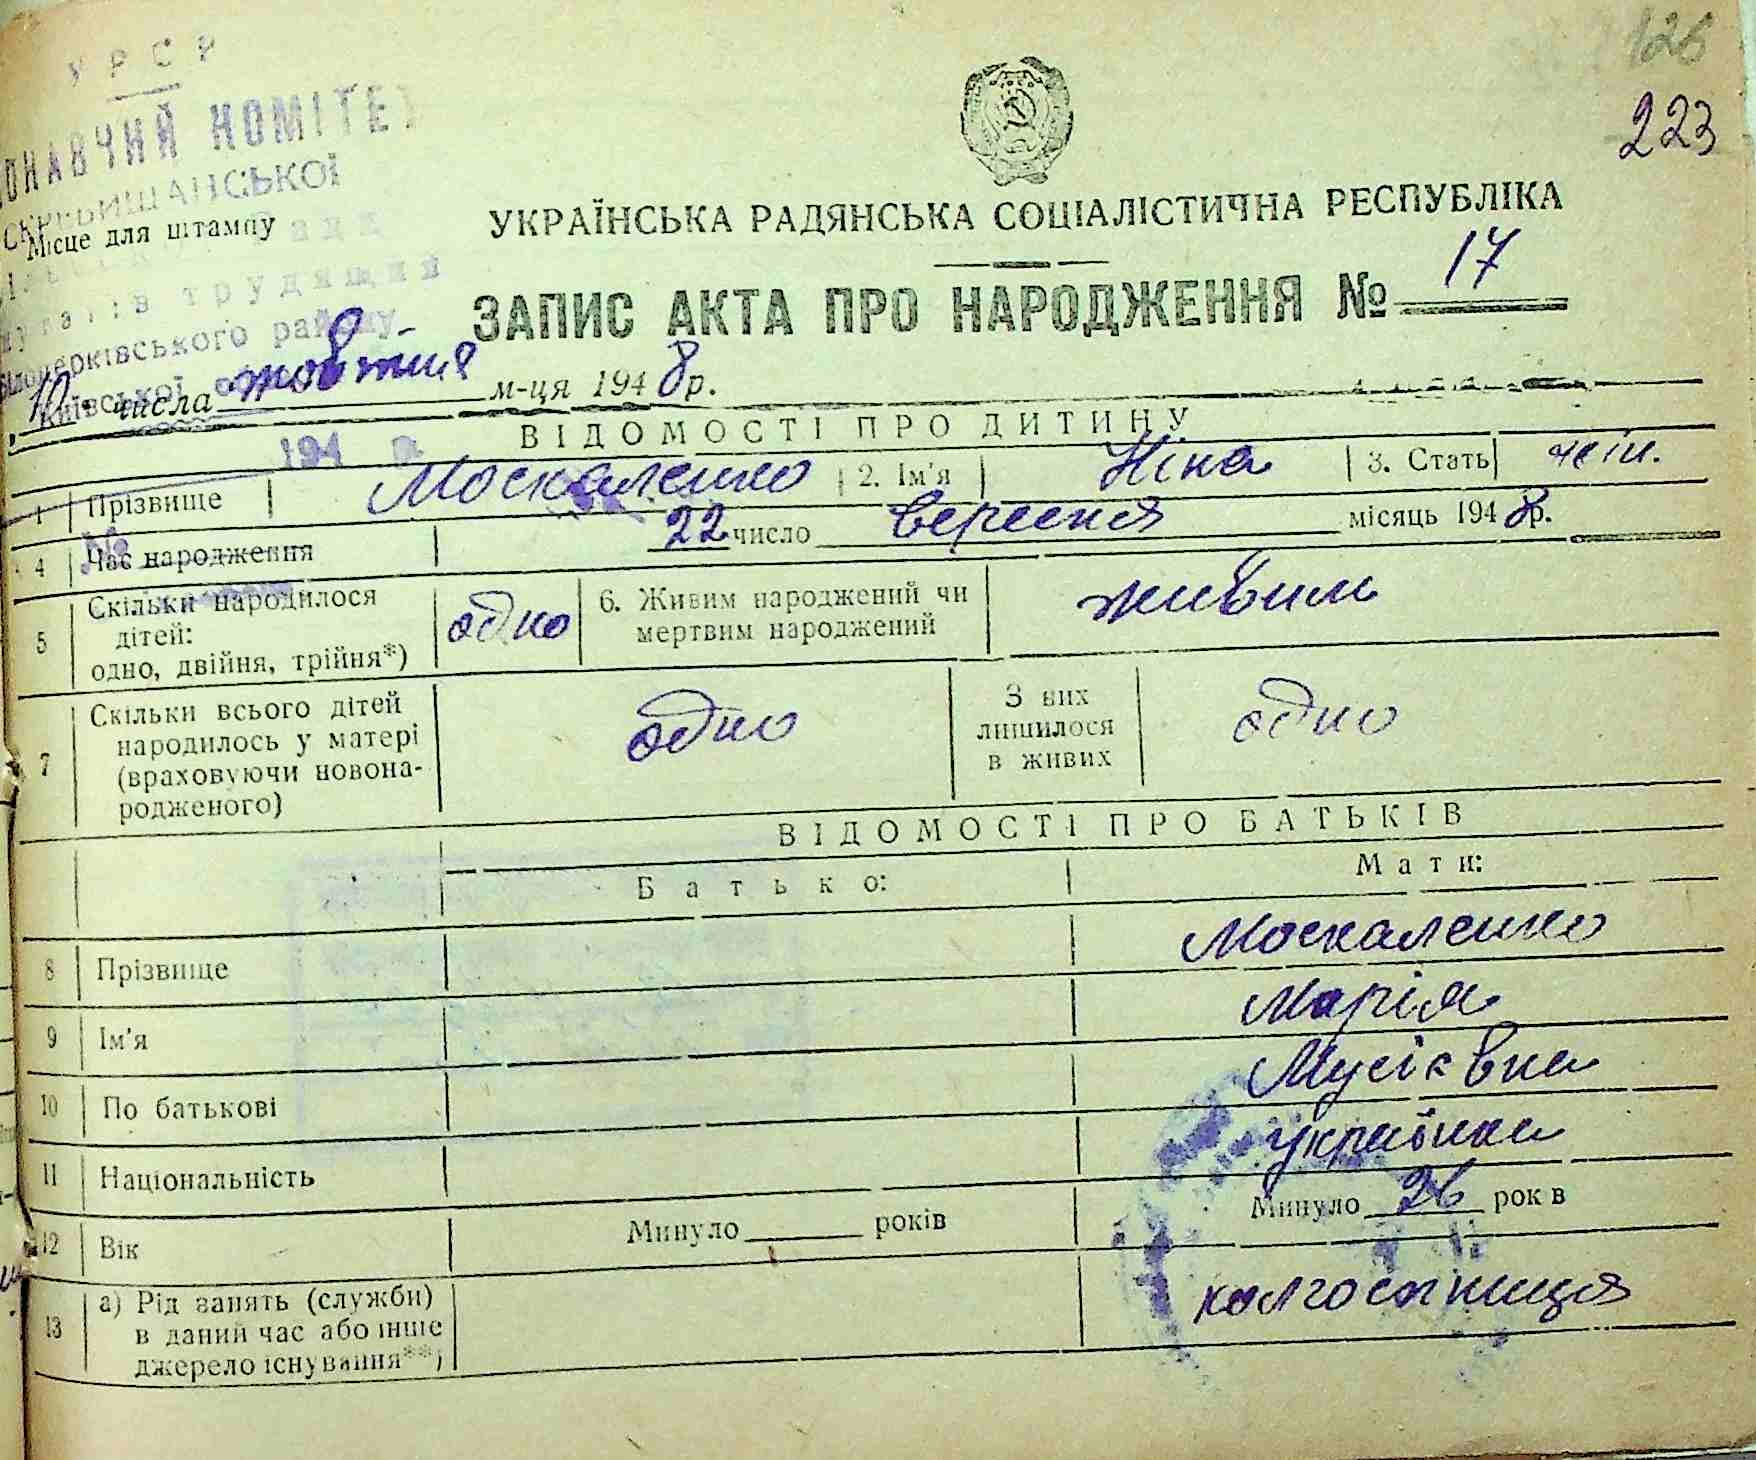 126
223
У Р С Р
ОНАВЧИЙ КОМІТЕ
СКРЕБИШАНСЬКОЇ
Місце для штампу
трудящий
ілоцерківського району
Київської
УКРАЇНСЬКА РАДЯНСЬКА СОЦІАЛІСТИЧНА РЕСПУБЛІКА
ЗАПИС АКТА ПРО НАРОДЖЕННЯ № 17
10 числа жовтня м-ця 1948 р.
194
ВІДОМОСТІ ПРО ДИТИНУ
1 Прізвище Москаленко 2. Ім'я Ніна 3. Стать
4 Час народження 22 число вересня місяць 1948 р.
5 Скільки народилося
дітей:
одно, двійня, трійня*) одно 6. Живим народжений чи
мертвим народжений живим
7 Скільки всього дітей
народилось у матері
(враховуючи новона-
родженого) одно З них
лишилося
в живих одно
ВІДОМОСТІ ПРО БАТЬКІВ
Батько: Мати:
8 Прізвище Москаленко
9 Ім'я Марія
10 По батькові Мусієвна
11 Національність українка
12 Вік Минуло років Минуло 26 років
13 а) Рід занять (служби)
в даний час або інше
джерело існування**) колгоспниця